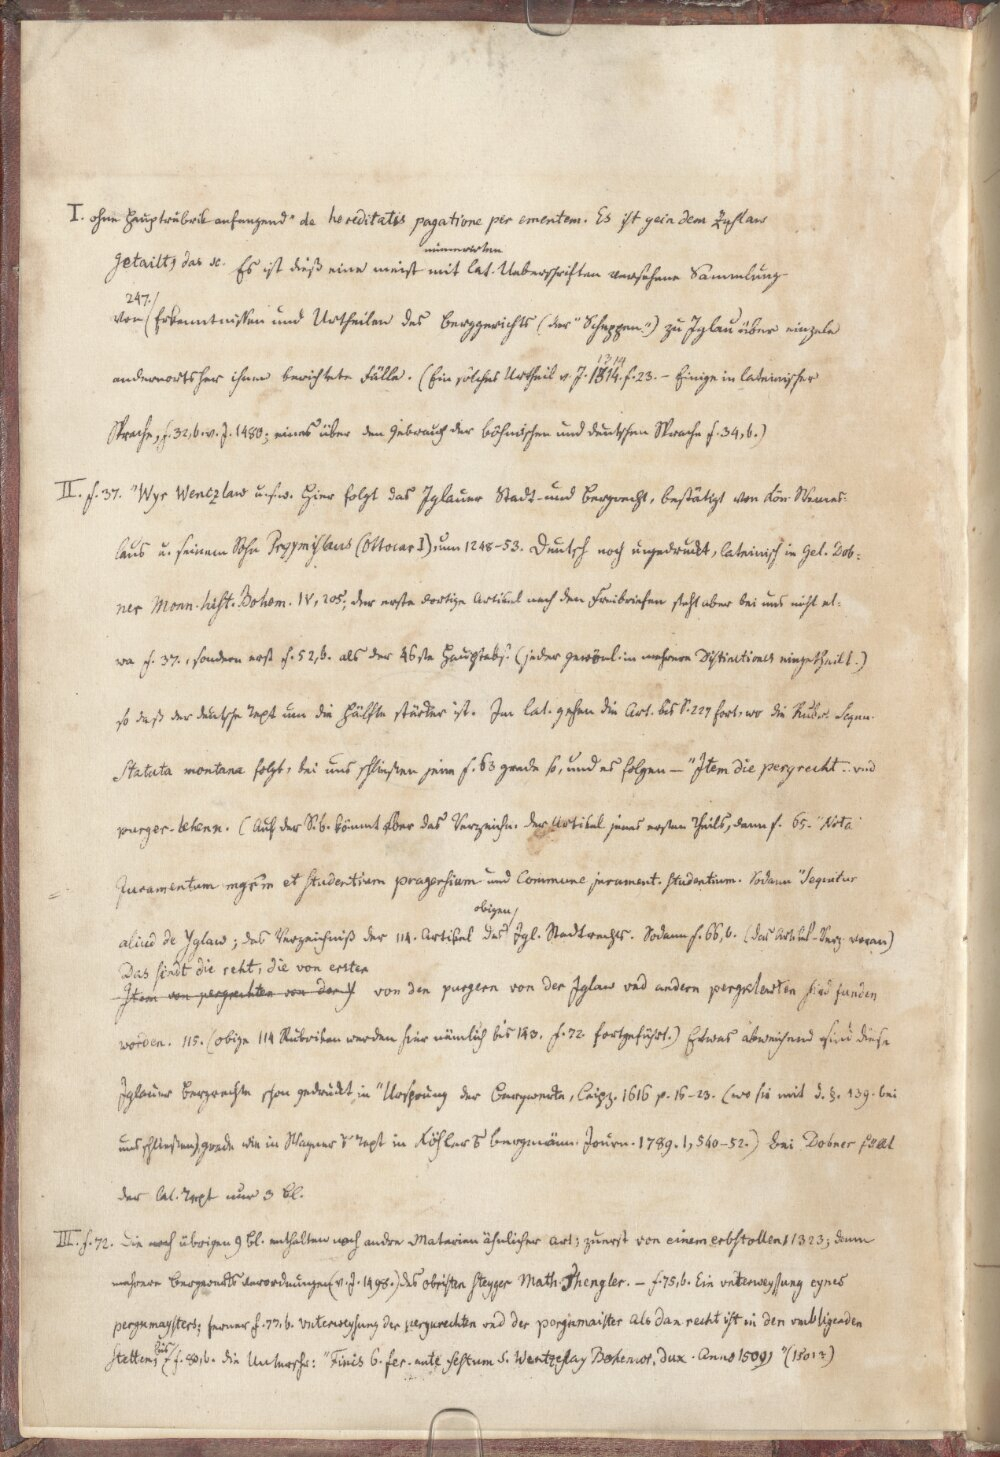 I. ohne Hauptrubrik anfangend "de hereditatis pagatione per ementem. Es ist gein dem
getailt, das sc. Es ist dieß eine meist mit numerirten lat. Ueberschriften versehene Sammlung
von 247 Erkenntnissen und Urtheilen des Berggerichts (der "Scheppen") zu Iglau über einzele
anderwortsher ihnen berichtete Fälle. (Ein solches Urtheil v. J. 1314. f. 23. – Einige in lateinischer
Sprache, f. 32,b. v. J. 1480; eines über den Gebrauch der böhmischen und deutschen Sprache f. 34,b.)
II. f. 37. "Wyr Wenczlaw u.s.w. Hier folgt das Iglauer Stadt- und Bergrecht, bestätigt von Kön. Wences-
laus u. seinem Sohn Przymislaus (Ottocar I), um 1248-53. Deutsch noch ungedruckt, lateinisch in Gel. Dob-
ner Monn. hist. Bohem. IV, 205; der erste dortige Artikel nach den Freibriefen steht aber bei uns nicht et-
wa f. 37., sondern erst f. 52,b. als der 46ste Hauptabs. (jeder gewönl. in mehrere Distinctiones eingetheilt.)
so daß der deutsche Text um die Hälfte stärker ist. Im lat. gehen die Art. bis S. 227 fort, wo die Rubr. Sequn.
Statuta montana folgt, bei uns schließen jene f. 63 grade so, und es folgen – "Item die pergrecht .. vnd
purger-lehenn. (Auf der S. b. kömmt aber das Verzeichn. der Artikel jenes ersten Theils, dann f. 65. "Nota
Juramentum mgr̄m et studentium pragensium und Commune jurament. studentium. Sodann "Sequitur
aliud de Yglaw; das Verzeichniß der 114. Artikel des obigen Igl. Stadtrechts. Sodann f. 66,b. (das Artikel-Verz. voran)
Das sindt die reht, die von erster
Item von pergrechten von der von den purgern von der Iglaw vnd andern pergkleuten sind funden
worden. 115. (obige 114 Rubriken werden hier nämlich bis 143. f. 72 fortgeführt.) Etwas abweichend sind diese
Iglauer Bergrechte schon gedruckt in "Ursprung der Bergwerke, Leipz. 1616 p. 16-23. (wo sie mit d. §. 139. bei
uns schließen), grade wie in Wagner's Text in Köhler's bergmänn. Journ. 1789. I, 540-52.) Bei Dobner füllt
der lat. Text nur 3 Bl.
III. f. 72. Die noch übrigen 9 Bl. enthalten noch andre Materien ähnlicher Art; zuerst von einem erbstollen 1323; dann
mehrere Bergwerksverordnungen (v. J. 1498.) des obristen Steyger Math. Thengler. – f. 75,b. Ein vnterweysung eynes
pergkmaysters; ferner f. 77,b. vnterweysung der pergkrechten vnd der pergkmaister als dan recht ist in den vmbligenden
Stetten; bis f. 80,b. die Unterschr: "Finis 6. fer. ante festum S. Wentzeslay Bohemor. dux. Anno 1509,"(1501?)